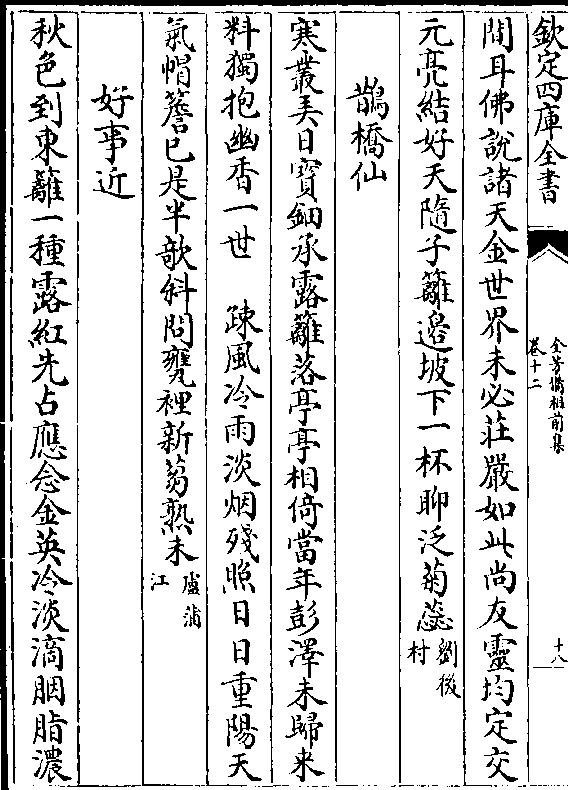 欽定四庫全書
全芳備祖前集
卷十二
十八
間耳佛說諸天金世界未必莊嚴如此尚友靈均定交
元亮結好天隨子籬邉坡下一杯聊泛菊蕊劉後村
鵲橋仙
寒叢美日寳鈿承露籬落亭亭相倚當年彭澤未歸来
料獨抱幽香一世　踈風冷雨淡烟殘照日日重陽天
氣帽簷已是半欹斜問甕裡新蒭熟未盧蒲江
好事近
秋色到東籬一種露紅先占應念金英冷淡滴胭脂濃